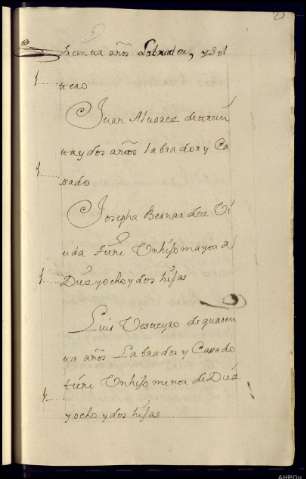 años Labrador, y Sol
tero
Juan Alvarez de
ta y dos años labrador y Ca
sado
Josepha Bernardez Vi
uda tiene Un hijo mayor de
Diez y ocho y dos hijas
Luis de quaren
ta años Labrador y Casado
tiene Un hijo menor de Diez
y ocho y dos hijas